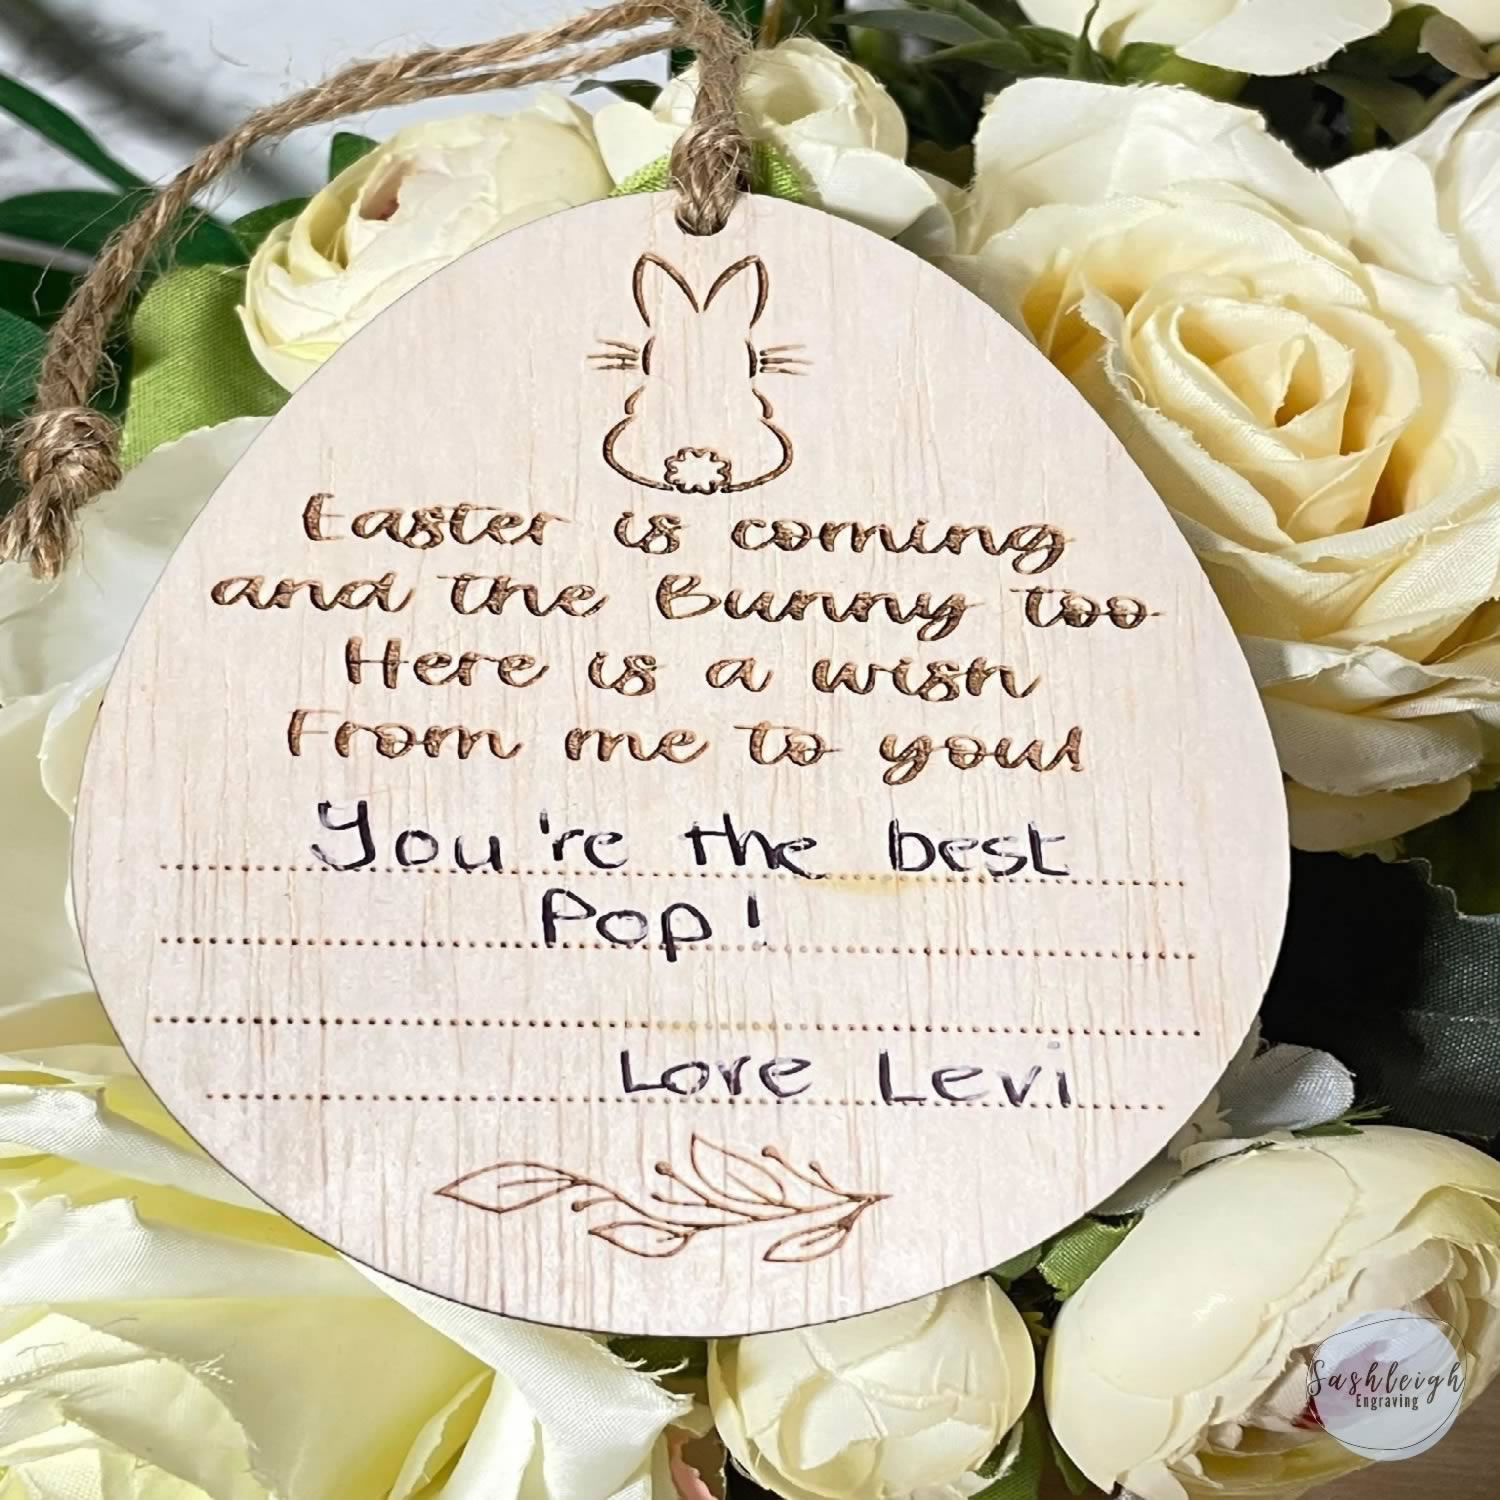 Easter is coming
and the Bunny too
Here is a wish
From me to you!
You're the best
Pop!
Love Levi
Sashleigh
Engraving